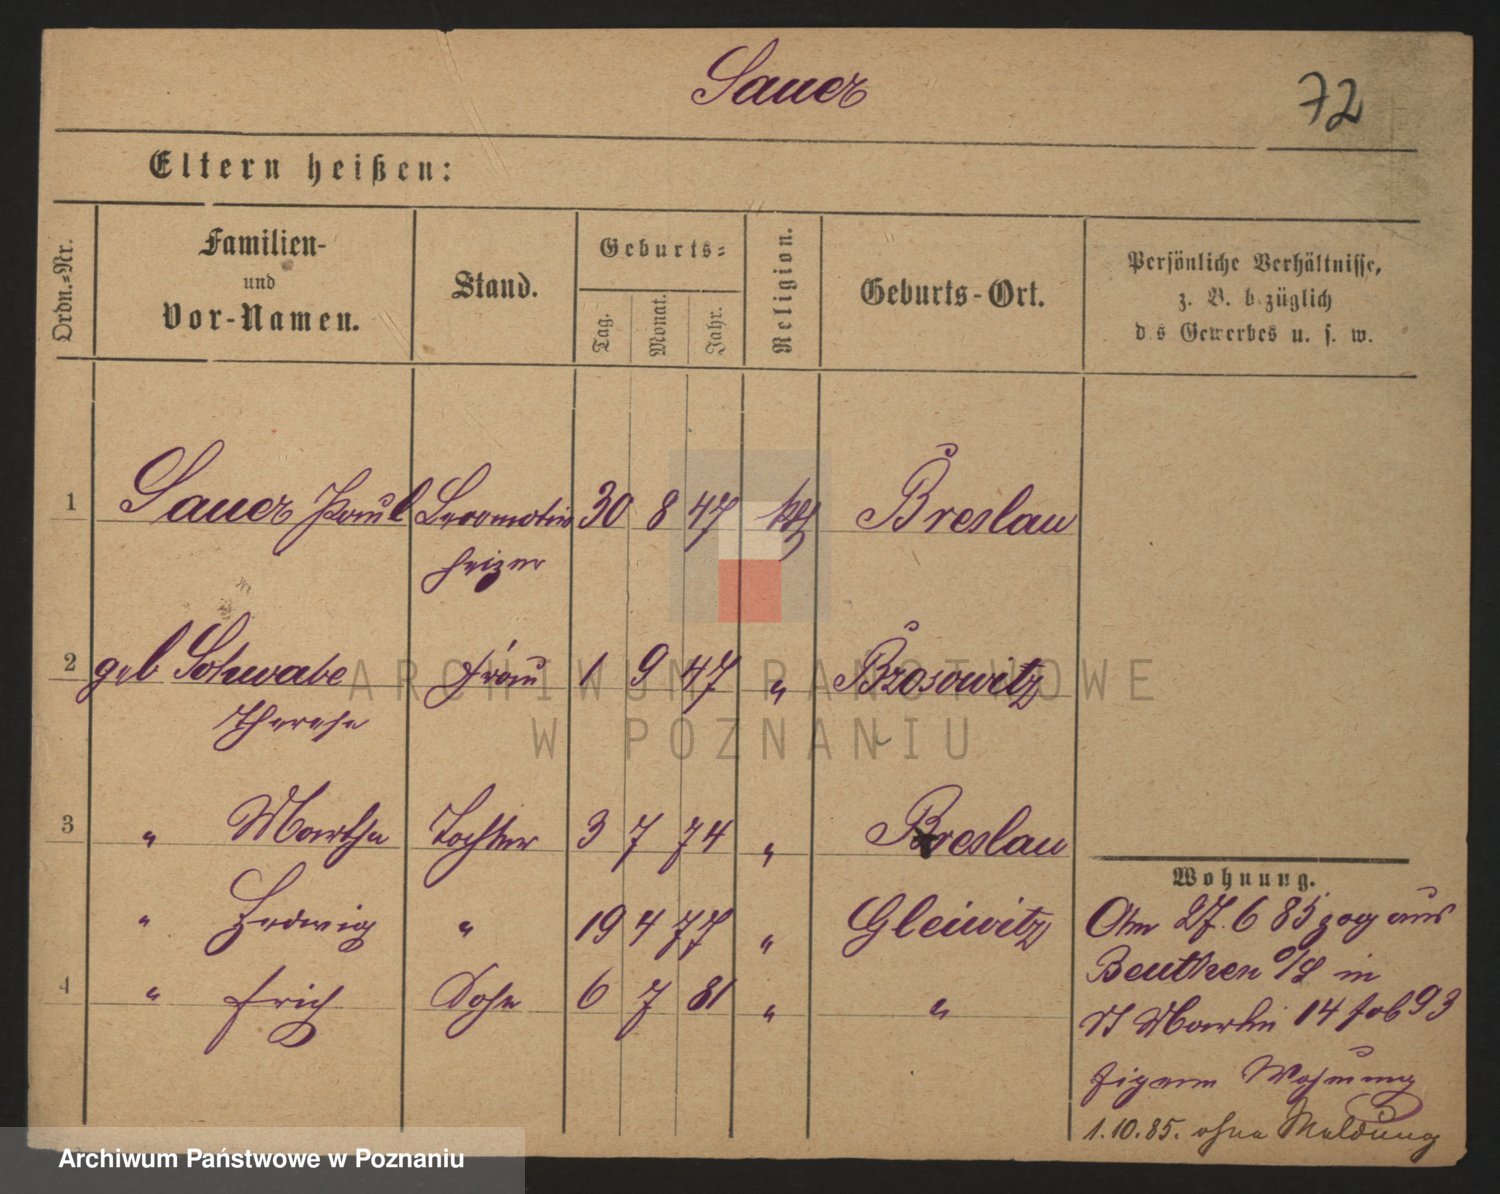 Sauer
72
Eltern heißen:
Ordn.=Nr.
Familien-
und
Vor-Namen.
Stand.
Geburts=
Tag.
Monat.
Jahr.
Religion.
Geburts-Ort.
Persönliche Verhältnisse,
z. B. bezüglich
des Gewerbes u. s. w.
1 Sauer Paul Locomotiv 30 8 47 kth Breslau
heizer
2 geb Schwabe Frau 1 9 47 " Brosowitz
Therese
3 " Martha Tochter 3 7 74 " Breslau
" Hedwig " 19 4 77 " Gleiwitz
4 " Erich Sohn 6 7 81 " "
Wohnung.
Am 27. 6 85 zog aus
Beuthen o/S in
St Martin 14 93
Wohnung
1.10.85. ohne Meldung
ARCHIWUM PAŃSTWOWE
W POZNANIU
Archiwum Państwowe w Poznaniu